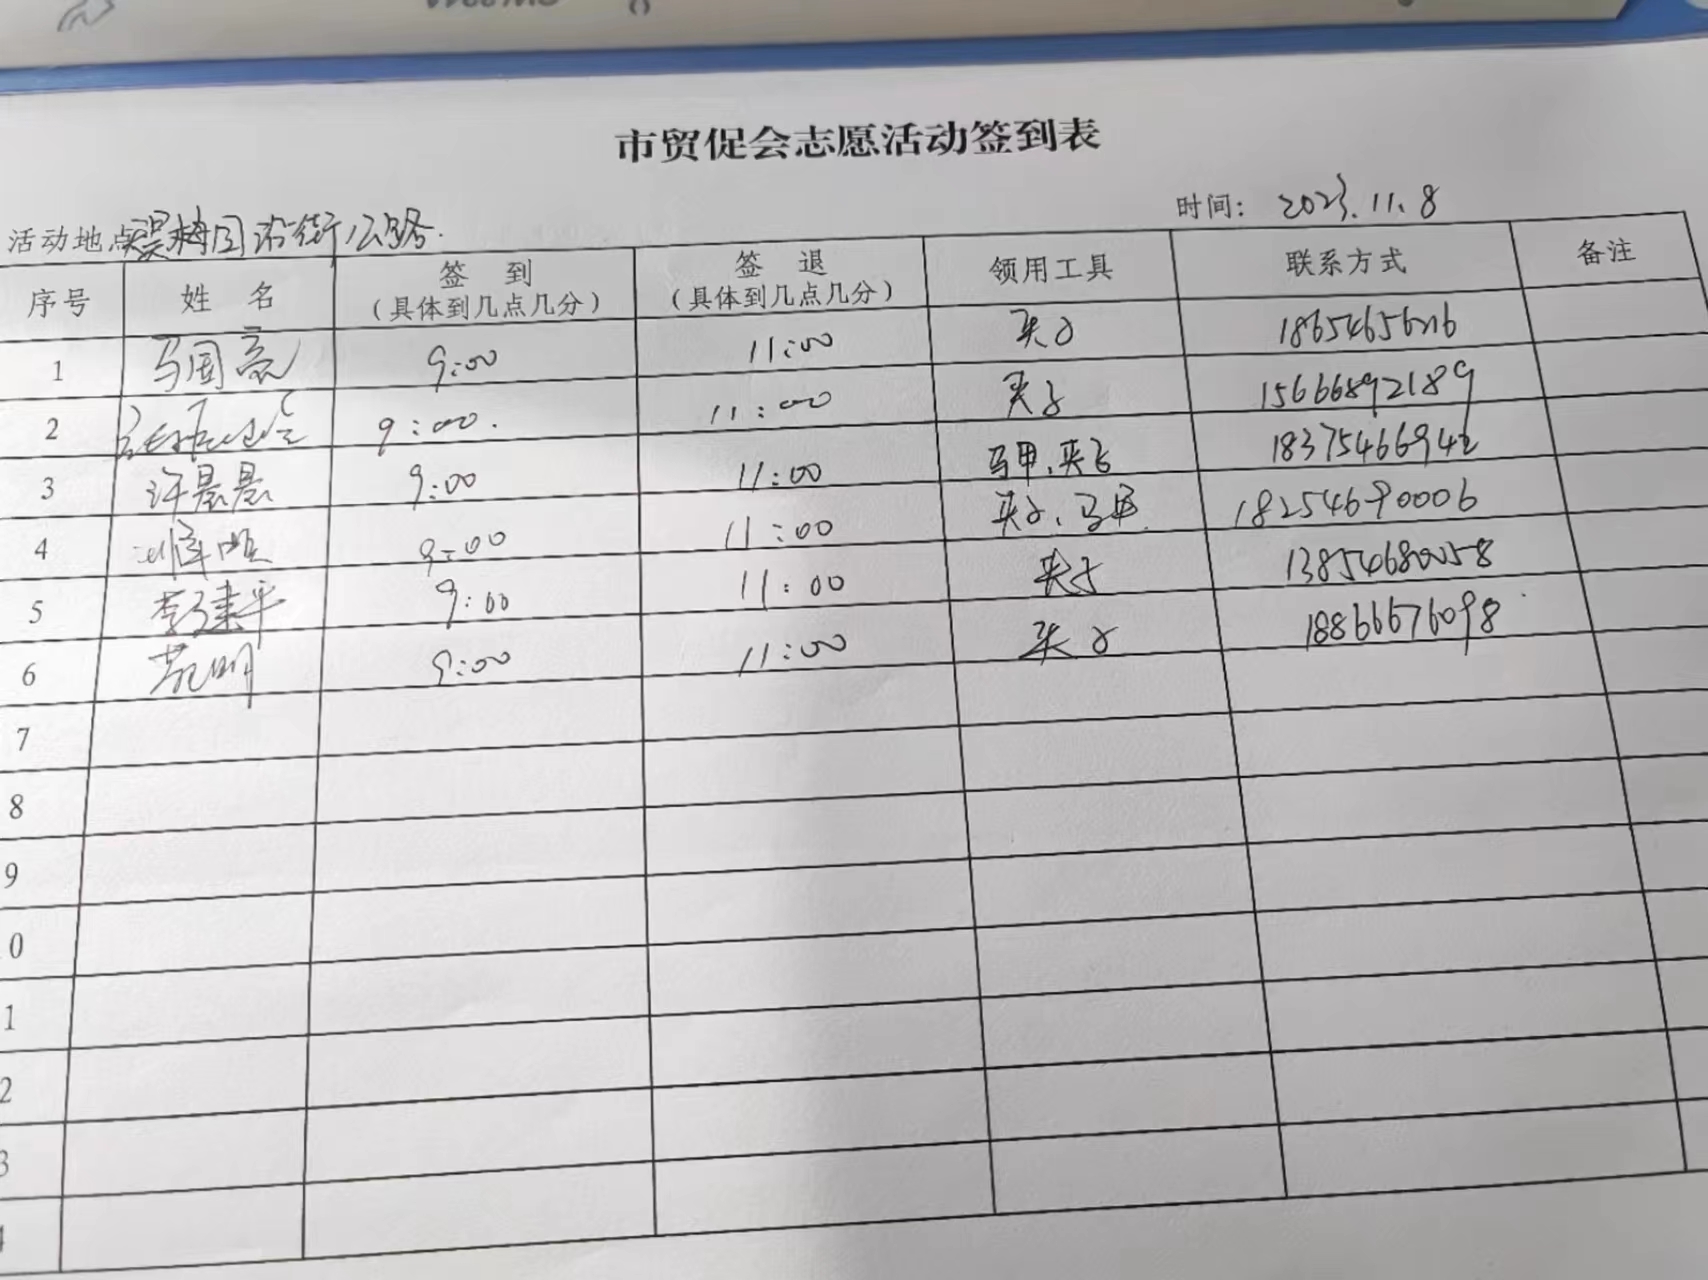 市贸促会志愿活动签到表
活动地点 沿街公路 时间: 2023.11.8
序号 姓 名 签 到 (具体到几点几分) 签 退 (具体到几点几分) 领用工具 联系方式 备注
1 马国豪 9:00 11:00 夹子
2 9:00. 11:00 夹子 15666892189
3 许晨晨 9:00 11:00 马甲、夹子 18375466942
4 9:00 11:00 夹子、马甲 18254690006
5 李建平 9:00 11:00 夹子 13854680058
6 9:00 11:00 夹子 18866676098
7
8
9
0
1
2
3
4